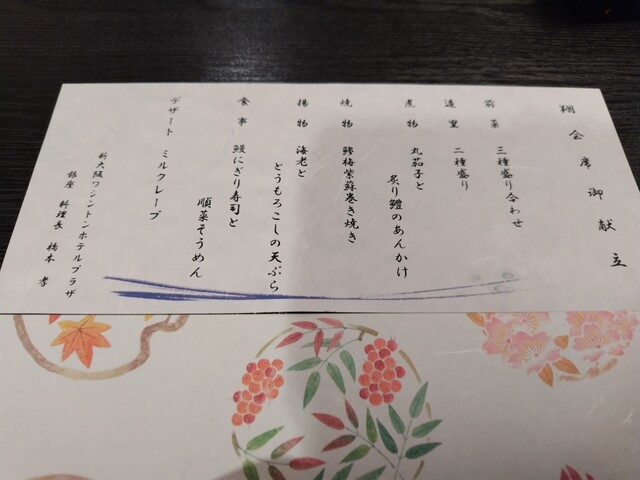 翔会席御献立
前菜 三種盛り合わせ
造里 二種盛り
煮物 丸茄子と
炙り鱧のあんかけ
焼物 鯵梅紫蘇巻き焼き
揚物 海老と
とうもろこしの天ぷら
食事 鰻にぎり寿司と
順菜そうめん
デザート ミルクレープ
新大阪ワシントンホテルプラザ
銀座 料理長 橋本 孝